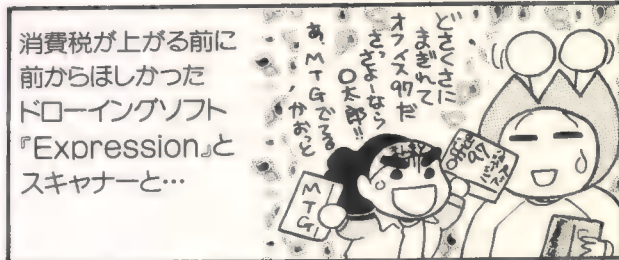 消費税が上がる前に
前からほしかった
ドローイングソフト
『Expression』と
スキャナーと…
どさくさに
まぎれて
オフィス97だ
さっさよーなら
〇太郎!!
あ、MTGでてる
かおっと
MTG
Office
97